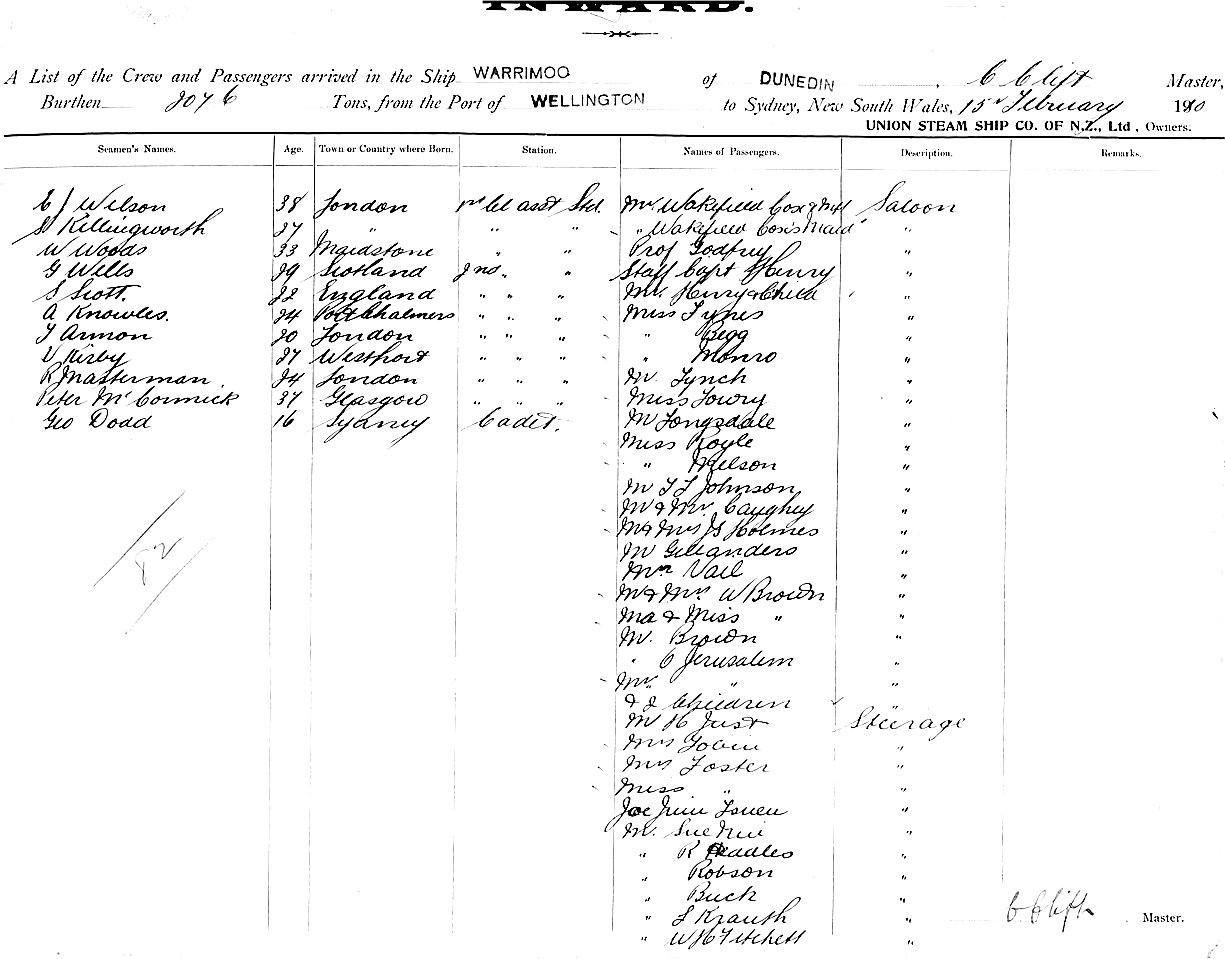 INWARD.
A List of the Crew and Passengers arrived in the Ship WARRIMOO of DUNEDIN, C Clift Master,
Burthen 2076 Tons, from the Port of WELLINGTON to Sydney, New South Wales, 15th February 1910
UNION STEAM SHIP CO. OF N.Z., Ltd, Owners.
Seamen's Names. Age. Town or Country where Born. Station. Names of Passengers. Description. Remarks.
C J Wilson 38 London 1st Cl asst Std. Mr Wakefield Cox & Saloon
S Killingworth 37 " " " " Wakefield Cox's Maid "
W Woods 33 Maidstone " " Prof Godfrey "
G Wells 29 Scotland 2nd " " Staff Capt Henry "
S Scott. 22 England " " " Mrs Henry & Child "
A Knowles. 24 Port Chalmers " " " Miss Tynes "
T Armon 20 London " " " " Begg "
V Kirby 27 Westport " " " " Monro "
R Masterman. 24 London " " " M Lynch "
Peter McCormick 37 Glasgow " " " Miss Lowry "
Geo Dodd 16 Sydney Cadet. M Longsdale "
Miss Royle "
" Nelson "
M T T Johnson "
M & Mrs Caughey "
M & Mrs JS Holmes "
M Gillanders "
Mrs Vail "
M & Mrs W Brown "
Ma & Miss " "
M. Brown "
" C Jerusalem "
Mrs " "
& 2 Children "
M H Just Steerage
Mrs "
Mrs Foster "
Miss " "
Joe "
M. Sue "
" R "
" Robson "
" Buck "
" L Krauth "
" W H Fitchett "
82
C Clift Master.